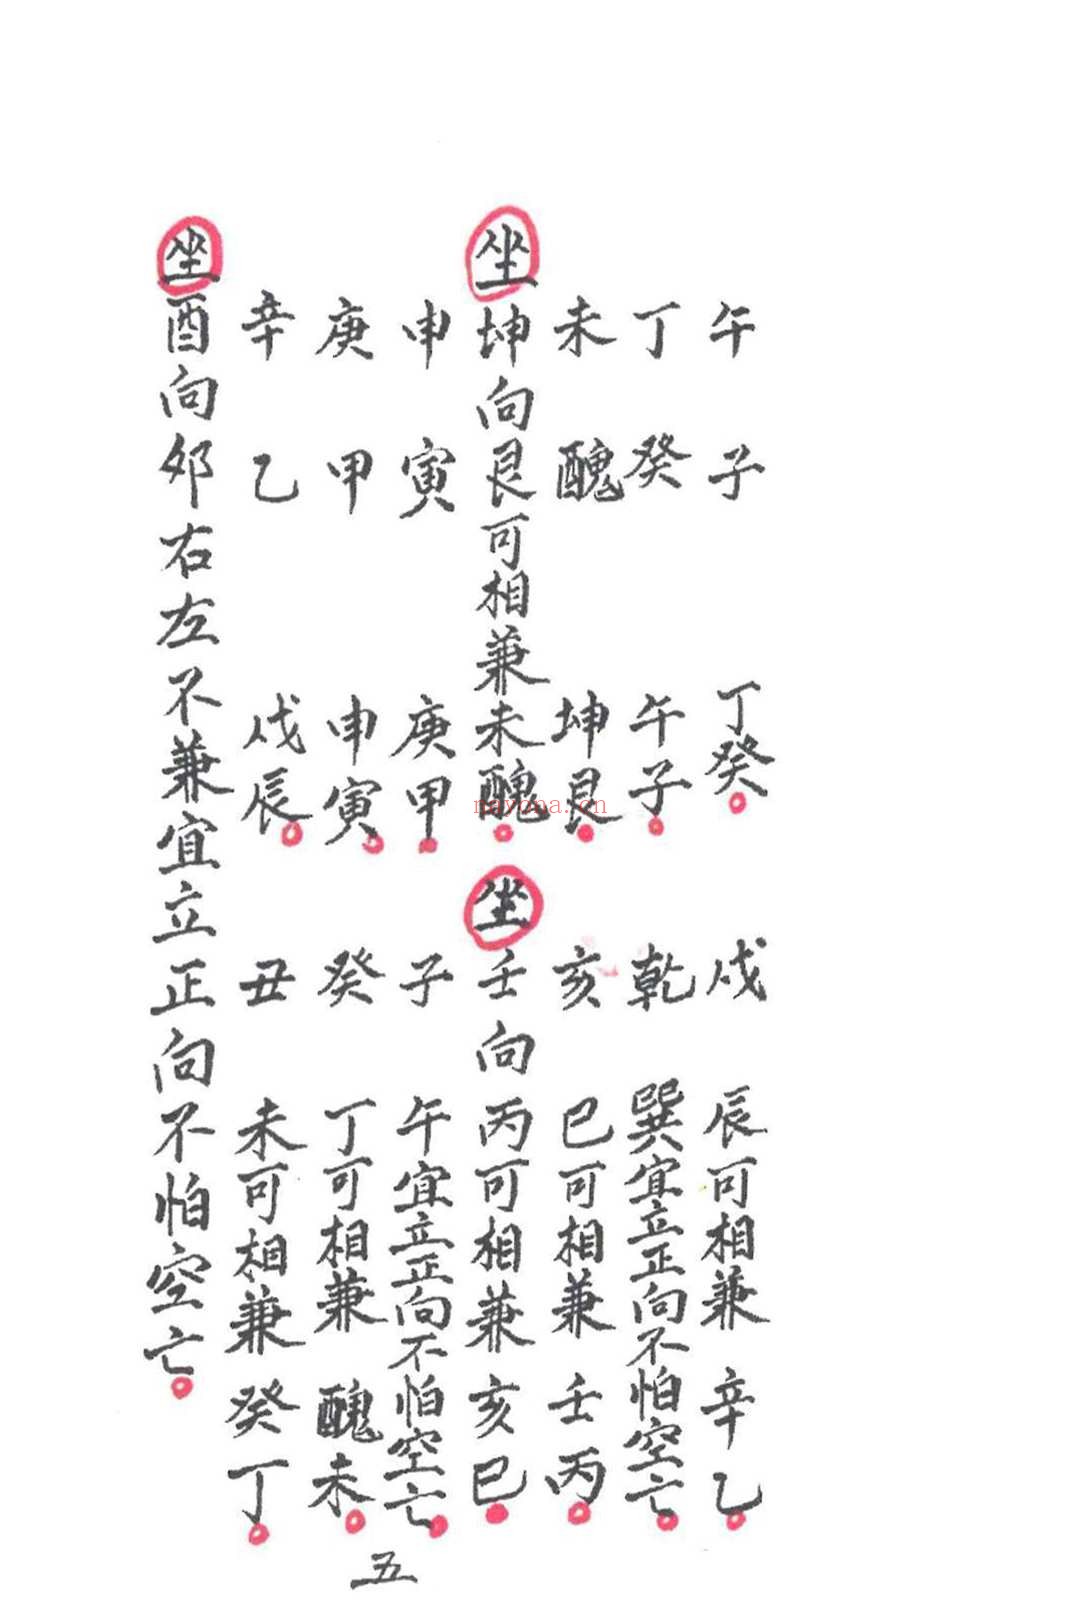 午 子 丁癸。戌 辰可相兼 辛乙。
丁 癸 午子。乾 巽宜立正向不怕空亡。
未 醜 坤艮。亥 巳可相兼 壬丙。
坐坤向艮可相兼未醜。坐壬向丙可相兼亥巳。
申 寅 庚甲。子 午宜立正向不怕空亡。
庚 甲 申寅。癸 丁可相兼 醜未。
辛 乙 戌辰。丑 未可相兼 癸丁。
坐酉向卯右左不兼宜立正向不怕空亡。
五
nayona.cn